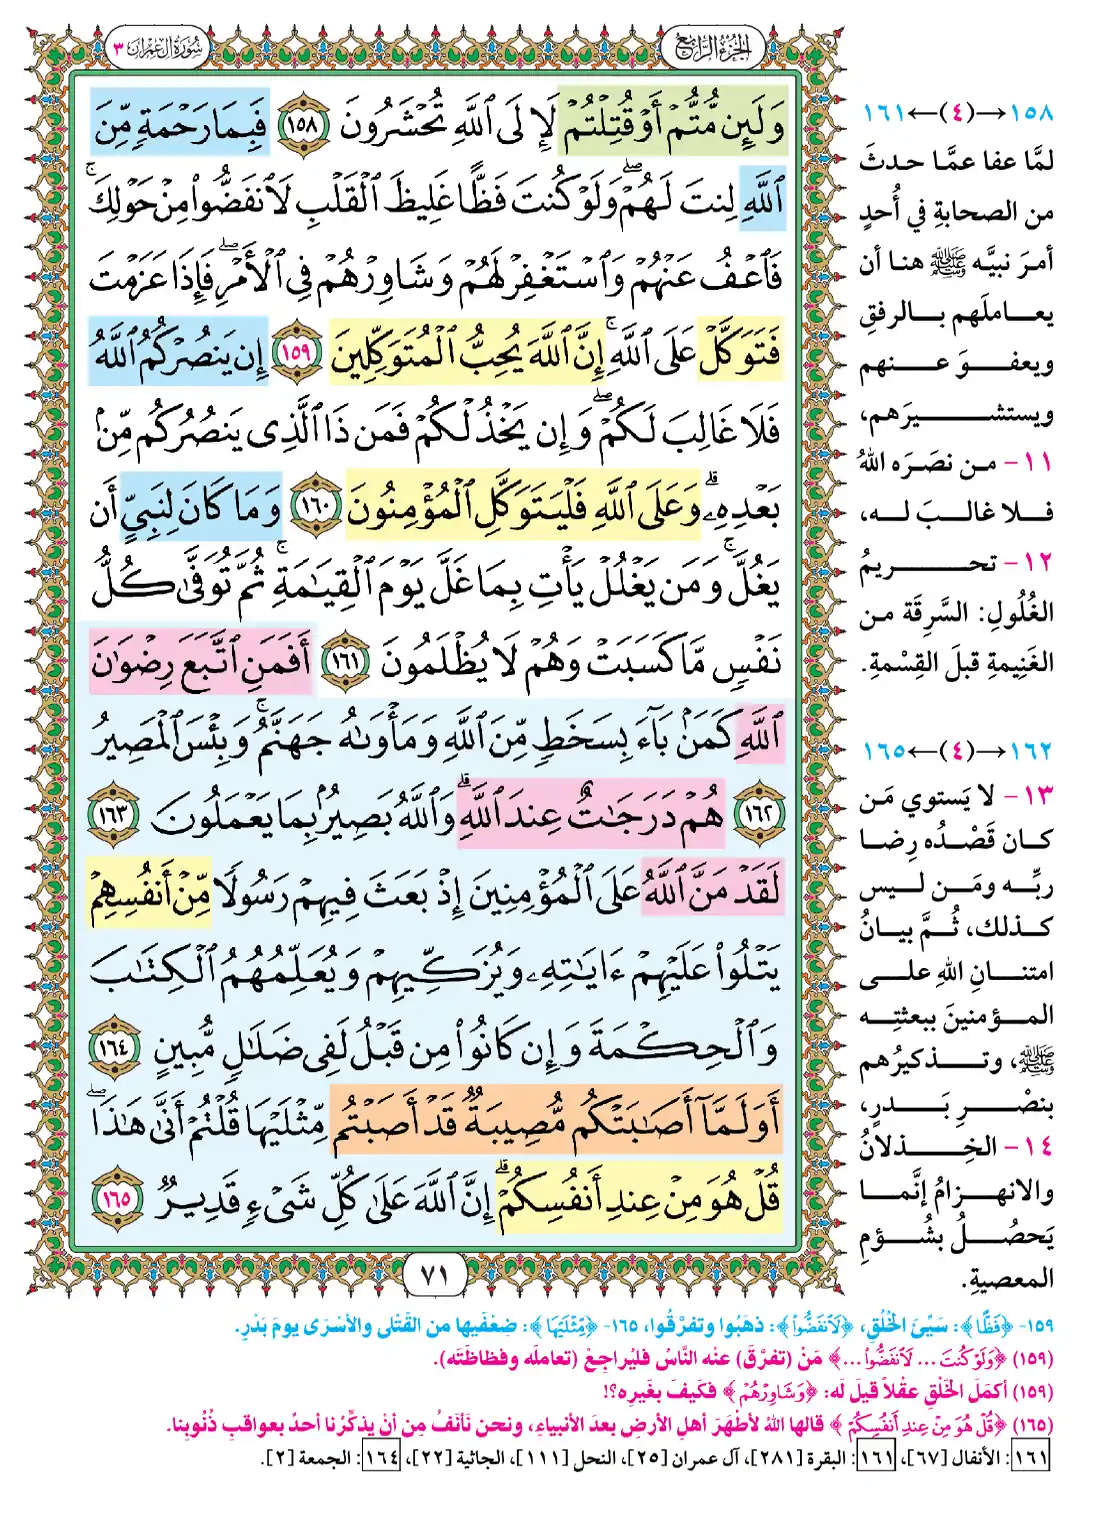 سُورَةُ آلِ عِمْرَانَ ٣
الجُزْءُ الرَّابِعُ
وَلَئِن مُّتُّمْ أَوْ قُتِلْتُمْ لَإِلَى ٱللَّهِ تُحْشَرُونَ ١٥٨ فَبِمَا رَحْمَةٍ مِّنَ
ٱللَّهِ لِنتَ لَهُمْ ۖ وَلَوْ كُنتَ فَظًّا غَلِيظَ ٱلْقَلْبِ لَٱنفَضُّوا۟ مِنْ حَوْلِكَ ۖ
فَٱعْفُ عَنْهُمْ وَٱسْتَغْفِرْ لَهُمْ وَشَاوِرْهُمْ فِى ٱلْأَمْرِ ۖ فَإِذَا عَزَمْتَ
فَتَوَكَّلْ عَلَى ٱللَّهِ ۚ إِنَّ ٱللَّهَ يُحِبُّ ٱلْمُتَوَكِّلِينَ ١٥٩ إِن يَنصُرْكُمُ ٱللَّهُ
فَلَا غَالِبَ لَكُمْ ۖ وَإِن يَخْذُلْكُمْ فَمَن ذَا ٱلَّذِى يَنصُرُكُم مِّنۢ
بَعْدِهِۦ ۗ وَعَلَى ٱللَّهِ فَلْيَتَوَكَّلِ ٱلْمُؤْمِنُونَ ١٦٠ وَمَا كَانَ لِنَبِىٍّ أَن
يَغُلَّ ۚ وَمَن يَغْلُلْ يَأْتِ بِمَا غَلَّ يَوْمَ ٱلْقِيَـٰمَةِ ۚ ثُمَّ تُوَفَّىٰ كُلُّ
نَفْسٍ مَّا كَسَبَتْ وَهُمْ لَا يُظْلَمُونَ ١٦١ أَفَمَنِ ٱتَّبَعَ رِضْوَٰنَ
ٱللَّهِ كَمَنۢ بَآءَ بِسَخَطٍ مِّنَ ٱللَّهِ وَمَأْوَىٰهُ جَهَنَّمُ ۚ وَبِئْسَ ٱلْمَصِيرُ
١٦٢ هُمْ دَرَجَـٰتٌ عِندَ ٱللَّهِ ۗ وَٱللَّهُ بَصِيرٌۢ بِمَا يَعْمَلُونَ ١٦٣
لَقَدْ مَنَّ ٱللَّهُ عَلَى ٱلْمُؤْمِنِينَ إِذْ بَعَثَ فِيهِمْ رَسُولًا مِّنْ أَنفُسِهِمْ
يَتْلُوا۟ عَلَيْهِمْ ءَايَـٰتِهِۦ وَيُزَكِّيهِمْ وَيُعَلِّمُهُمُ ٱلْكِتَـٰبَ
وَٱلْحِكْمَةَ وَإِن كَانُوا۟ مِن قَبْلُ لَفِى ضَلَـٰلٍ مُّبِينٍ ١٦٤
أَوَلَمَّآ أَصَـٰبَتْكُم مُّصِيبَةٌ قَدْ أَصَبْتُم مِّثْلَيْهَا قُلْتُمْ أَنَّىٰ هَـٰذَا ۖ
قُلْ هُوَ مِنْ عِندِ أَنفُسِكُمْ ۗ إِنَّ ٱللَّهَ عَلَىٰ كُلِّ شَىْءٍ قَدِيرٌ ١٦٥
٧١
١٥٨→(٤)←١٦١
لمَّا عفا عمَّا حدثَ
من الصحابةِ في أُحدٍ
أمرَ نبيَّه ﷺ هنا أن
يعاملَهم بالرفقِ
ويعفوَ عنهم
ويستشيرَهم،
١١- من نصَرَه اللهُ
فلا غالبَ له،
١٢- تحريمُ
الغُلُولِ: السَّرِقَة من
الغَنِيمةِ قبلَ القِسْمةِ.
١٦٢→(٤)←١٦٥
١٣- لا يَستوي مَن
كان قَصْدُه رِضا
ربِّه ومَن ليس
كذلك، ثُمَّ بيانُ
امتنانِ اللهِ على
المؤمنينَ ببعثتِه
ﷺ، وتذكيرُهم
بنصْرِ بَدرٍ،
١٤- الخِذلانُ
والانهزامُ إنَّما
يَحصُلُ بشُؤمِ
المعصيةِ.
١٥٩- ﴿فَظًّا﴾: سَيِّئَ الخُلُقِ، ﴿لَٱنفَضُّوا۟﴾: ذهَبُوا وتفرَّقُوا، ١٦٥- ﴿مِّثْلَيْهَا﴾: ضِعْفَيها من القَتْلى والأسْرَى يومَ بَدْرٍ.
(١٥٩) ﴿وَلَوْ كُنتَ ... لَٱنفَضُّوا۟ ...﴾ مَنْ (تفرَّقَ) عنه النَّاسُ فليُراجِعْ (تعاملَه وفظاظَتَه).
(١٥٩) أكمَلَ الخَلْقِ عقْلاً قيلَ لَه: ﴿وَشَاوِرْهُمْ﴾ فكَيفَ بغَيرِه؟!
(١٦٥) ﴿قُلْ هُوَ مِنْ عِندِ أَنفُسِكُمْ﴾ قالها اللهُ لأطْهَرِ أهلِ الأرضِ بعدَ الأنبياءِ، ونحن نَأنَفُ مِن أنْ يذكِّرَنا أحدٌ بعواقبِ ذُنُوبِنا.
١٦١: الأنفال [٦٧]، ١٦١: البقرة [٢٨١]، آل عمران [٢٥]، النحل [١١١]، الجاثية [٢٢]، ١٦٤: الجمعة [٢].